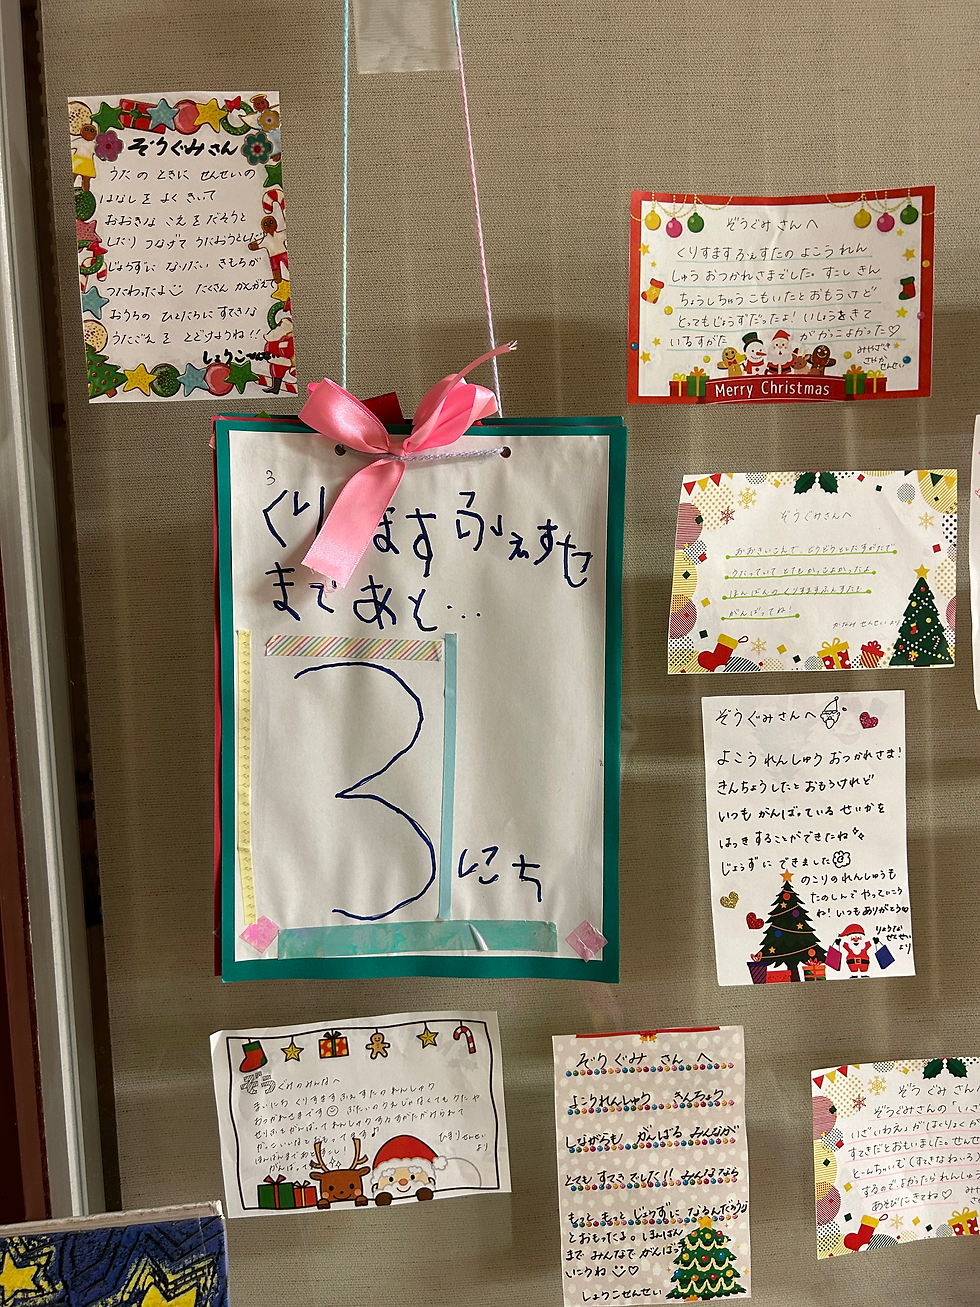 ぞうぐみさん
うた の ときに せんせいの
はなし を よく きいて
おおきな こえ を だそうと
したり つなげて うたおうとした
じょうずに なりたい きもちが
つたわったよ たくさん かんがえて
おうちの ひとたちに すてきな
うたごえ を とどけようね!!
しょうこせんせい
ぞうぐみさんへ
くりすますふぇすたの よこうれん
しゅう おつかれさまでした。すこし きん
ちょうしちゃうこもいたとおもうけど
とってもじょうずだったよ!いしょうをきて
いるすがた がかっこよかった♡
みやざき
せんせい
Merry Christmas
3
くり ます ふぇすた
まで あと...
3
にち
ぞうぐみさんへ
おおきいこえで、どうどうとしたすがたで
うたっていて とてもかっこよかったよ
ほんばんの くりすますふぇすたも
がんばってね!
せんせいより
ぞうぐみさんへ
よこう れんしゅう おつかれさま!
きんちょうしたと おもうけれど
いつも がんばっている せいかを
はっきすることができたね
じょうずに できました
のこりのれんしゅうも
たのしんで やっていこう
ね!いつもありがとう♡
りょうな
せんせい
より
ぞうぐみのみんなへ
まいにち くりすますふぇすたのれんしゅう
おつかれさまです ぶたいのうえじゃなくても うたや
せりふをがんばって れんしゅうするすがたがみられて
かっこいいなとおもってます♪
ほんばんまであとすこし!
がんばって
ひまりせんせい
より
ぞうぐみ さん へ
よこうれんしゅう きんちょう
しながらも がんばる みんなが
とても すてきでした!!みんななら
もっと もっと じょうずに なるんだろうな
とおもったよ。ほんばん
まで みんなで がんばって
いこうね ♡
しょうこせんせい
ぞうぐみ さんへ
ぞうぐみさんの「いさ
いざいわえ」がはくりょくが
すてきだとおもいました。せんせ
とーんちゃいむ(すてきなねいろ)
するので、よかったられんしゅう
あそびにきてね♡